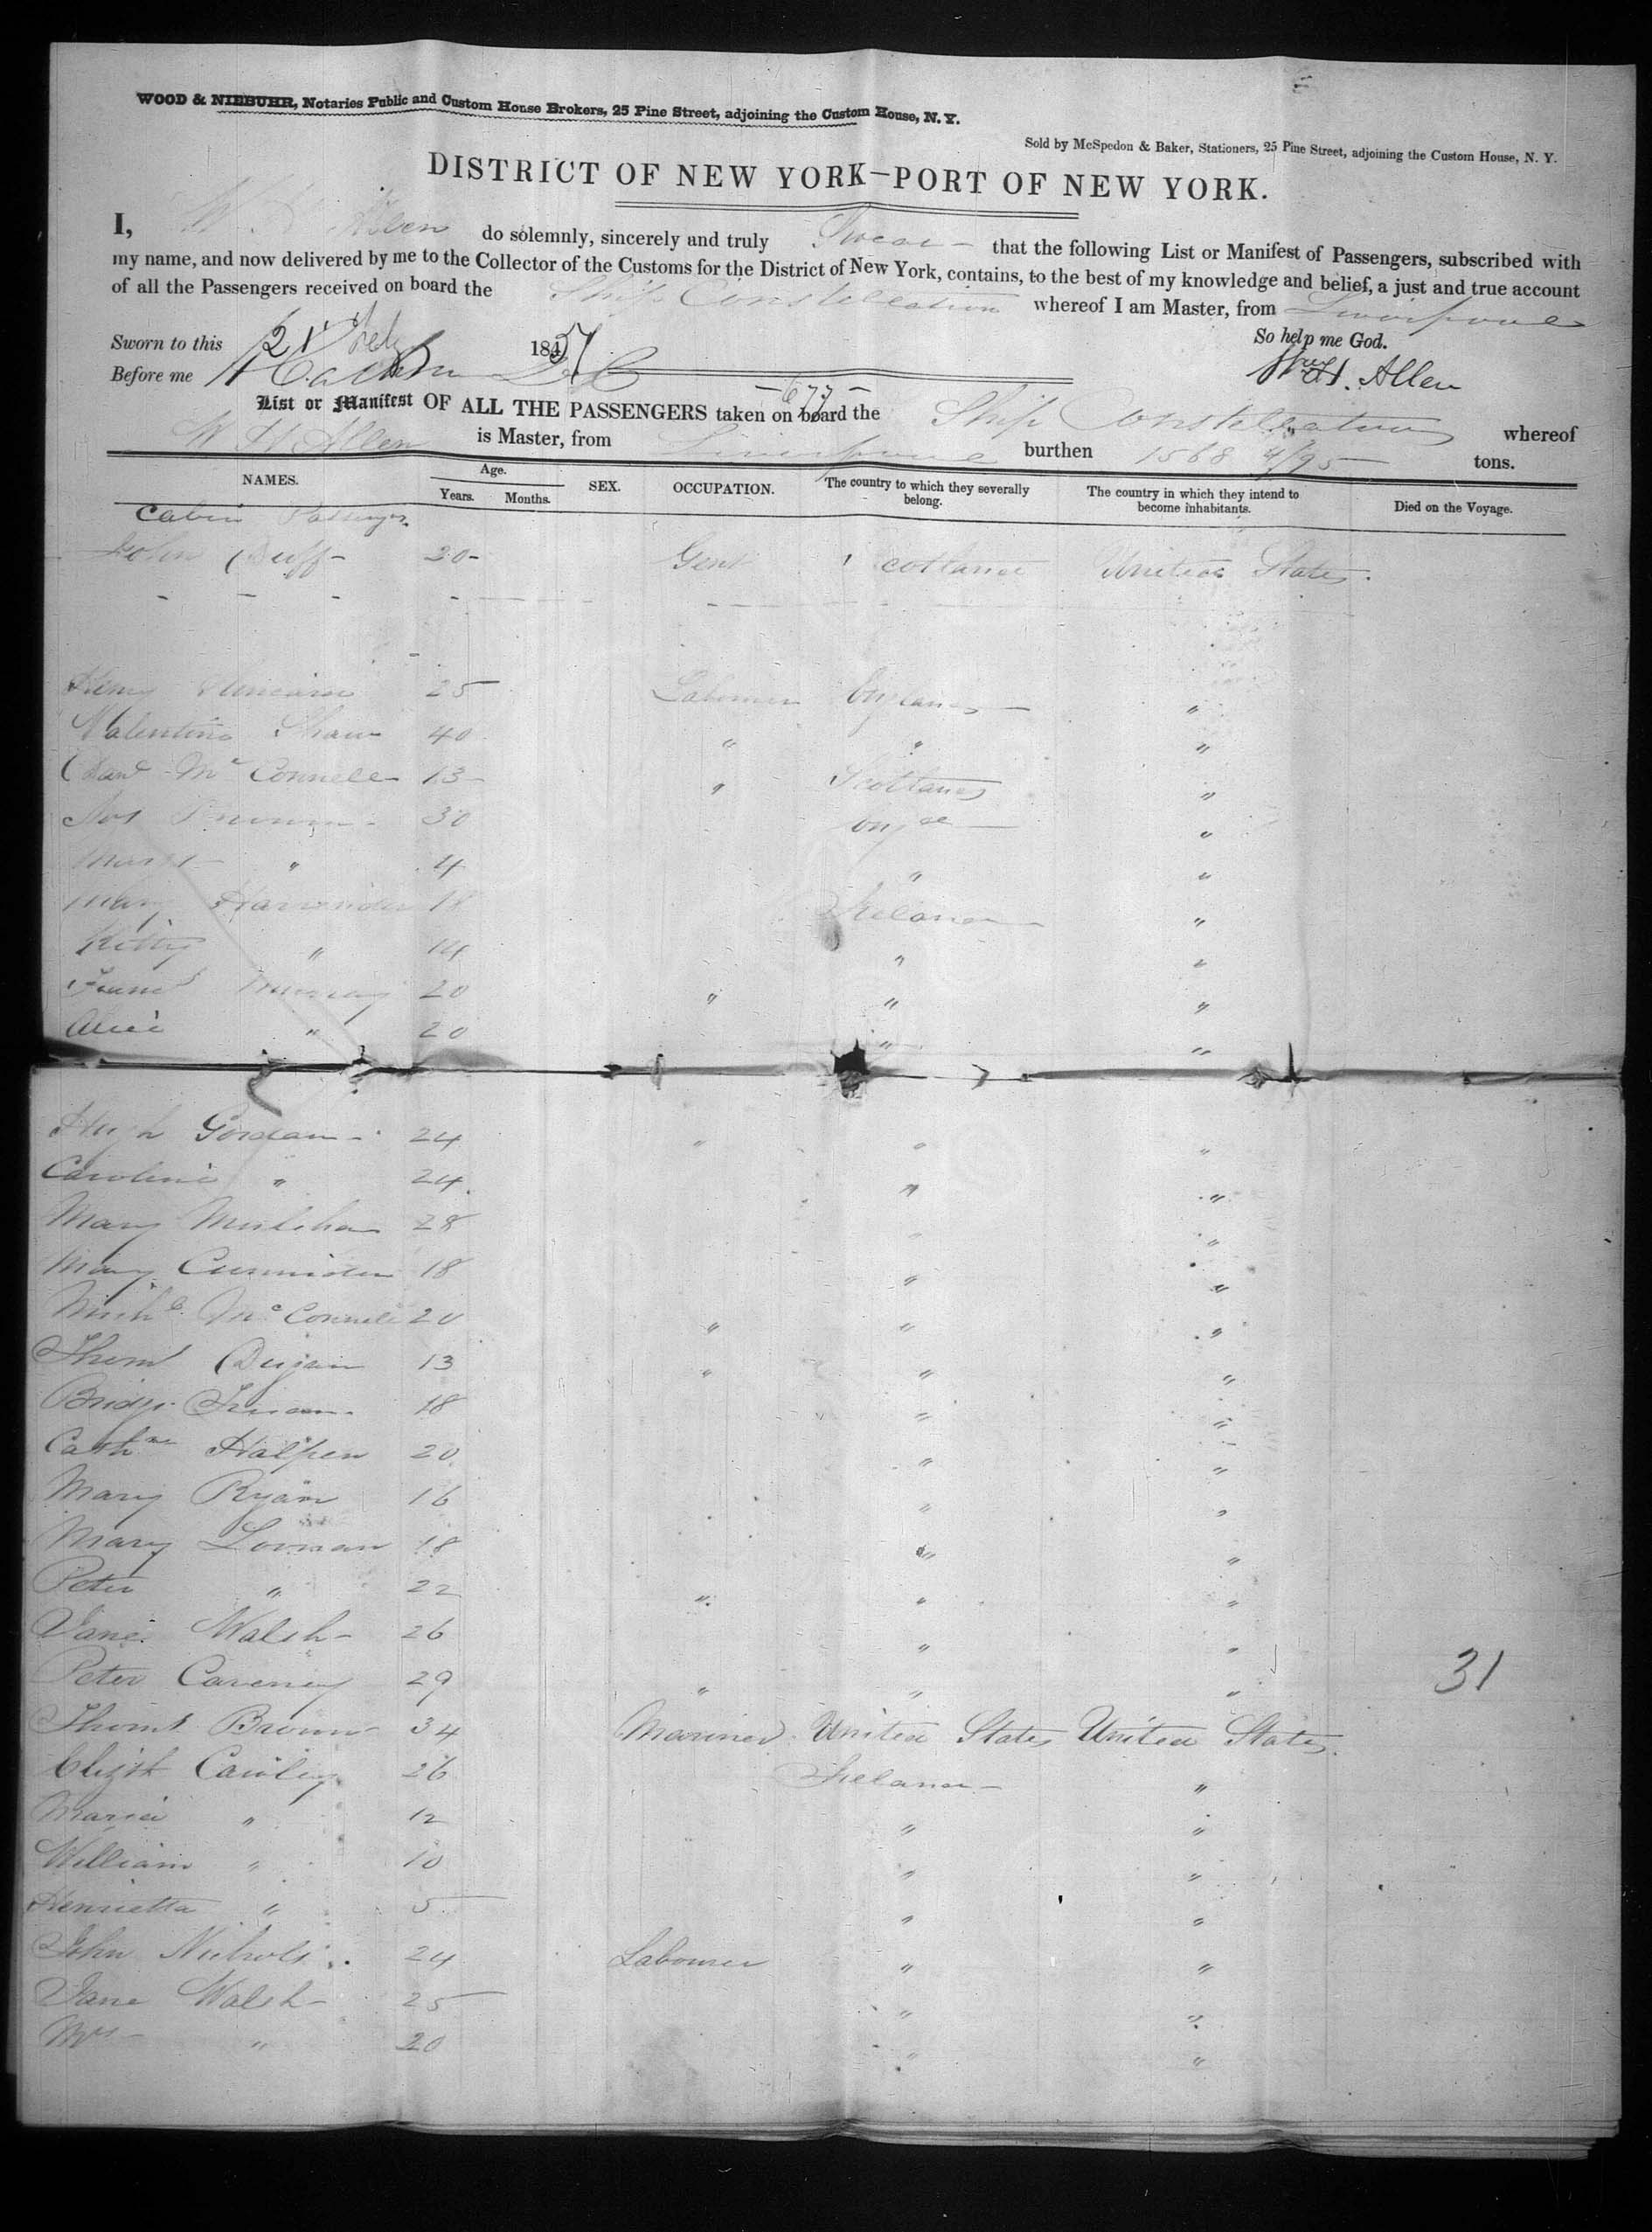 WOOD & NIEBUHR, Notaries Public and Custom House Brokers, 25 Pine Street, adjoining the Custom House, N. Y.
Sold by McSpedon & Baker, Stationers, 25 Pine Street, adjoining the Custom House, N. Y.
DISTRICT OF NEW YORK—PORT OF NEW YORK.
I, W H Allen do solemnly, sincerely and truly Swear - that the following List or Manifest of Passengers, subscribed with
my name, and now delivered by me to the Collector of the Customs for the District of New York, contains, to the best of my knowledge and belief, a just and true account
of all the Passengers received on board the Ship Constellation whereof I am Master, from Liverpool
Sworn to this 21 Feb 1851 So help me God.
Before me Wm H. Allen
- 677 -
List or Manifest OF ALL THE PASSENGERS taken on board the Ship Constellation whereof
W H Allen is Master, from Liverpool burthen 1568 4/95 tons.
NAMES. Age. Years. Months. SEX. OCCUPATION. The country to which they severally belong. The country in which they intend to become inhabitants. Died on the Voyage.
Cabin Passengers
John Duff - 20 - Gent Scotland United States.
Henry 25 Labourer England - "
Valentine Shaw 40 " " "
Dand McConnell 13 " Scotland "
30 Engd "
Margt " 4 " "
Mary 18 Ireland "
Kitty " 14 " "
Frans Murray 20 " " "
Alice " 20 " "
Hugh Gordan - 24 " " "
Caroline " 24 " "
Mary 28 " "
Mary 18 " "
Michl McConnell 20 " " "
Thoms Dugan 13 " " "
Bridgt 18 " "
Cathne Halpen 20 " "
Mary Ryan 16 " "
Mary Lovnan 18 " "
Peter " 22 " " "
Jane Walsh - 26 " "
Peter Caveney 29 " " " 31
Thoms Brown 34 Mariner United States United States
Elizth Cauley 26 Ireland - "
Maria " 12 " "
William " 10 " "
Henrietta " 5 " "
John Nichols 24 Labourer " "
Jane Walsh - 25 " "
Mrs " 20 " "